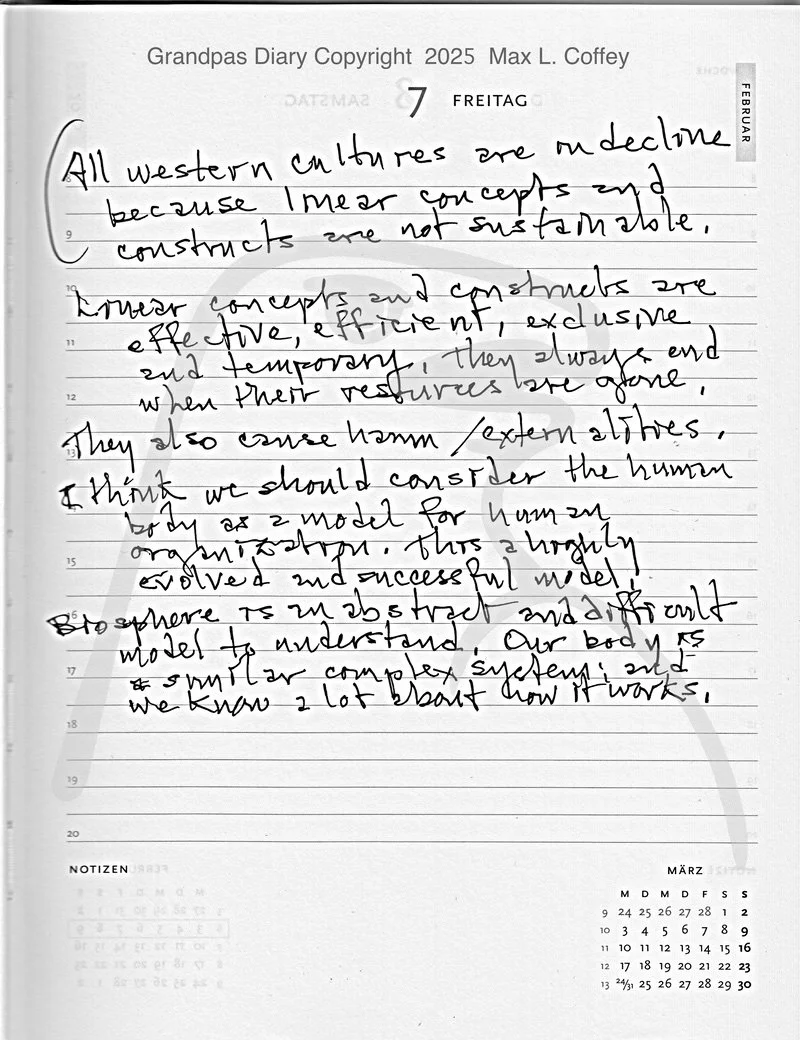 Grandpas Diary Copyright 2025 Max L. Coffey
7 FREITAG
FEBRUAR
All western cultures are on decline
because linear concepts and
constructs are not sustainable.
Linear concepts and constructs are
effective, efficient, exclusive
and temporary. They always end
when their resources are gone.
They also cause harm / externalities.
I think we should consider the human
body as a model for human
organization. This a highly
evolved and successful model!
Biosphere is an abstract and difficult
model to understand. Our body is
a similar complex system; and
we know a lot about how it works.
9
10
11
12
13
15
16
17
18
19
20
NOTIZEN
MÄRZ
M D M D F S S
9 24 25 26 27 28 1 2
10 3 4 5 6 7 8 9
11 10 11 12 13 14 15 16
12 17 18 19 20 21 22 23
13 24/31 25 26 27 28 29 30